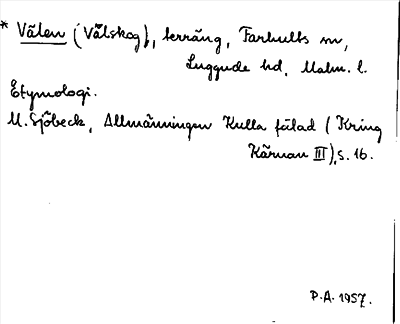 * Vålen (Vålskog), terräng, Farhults sn,
Luggude hd, Malm. l.
Etymologi.
M. Sjöbeck, Allmänningen Kulla fälad (Kring
Kärnan III), s. 16.
P.A. 1957.